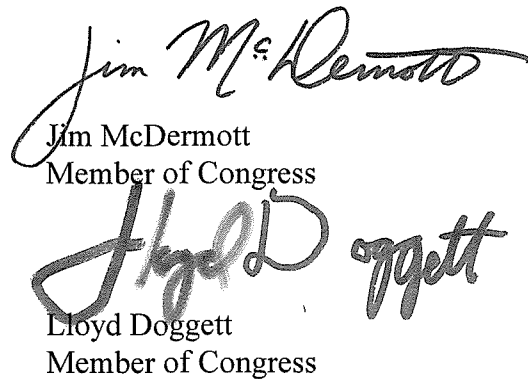 Jim McDermott
Jim McDermott
Member of Congress
Lloyd Doggett
Lloyd Doggett
Member of Congress